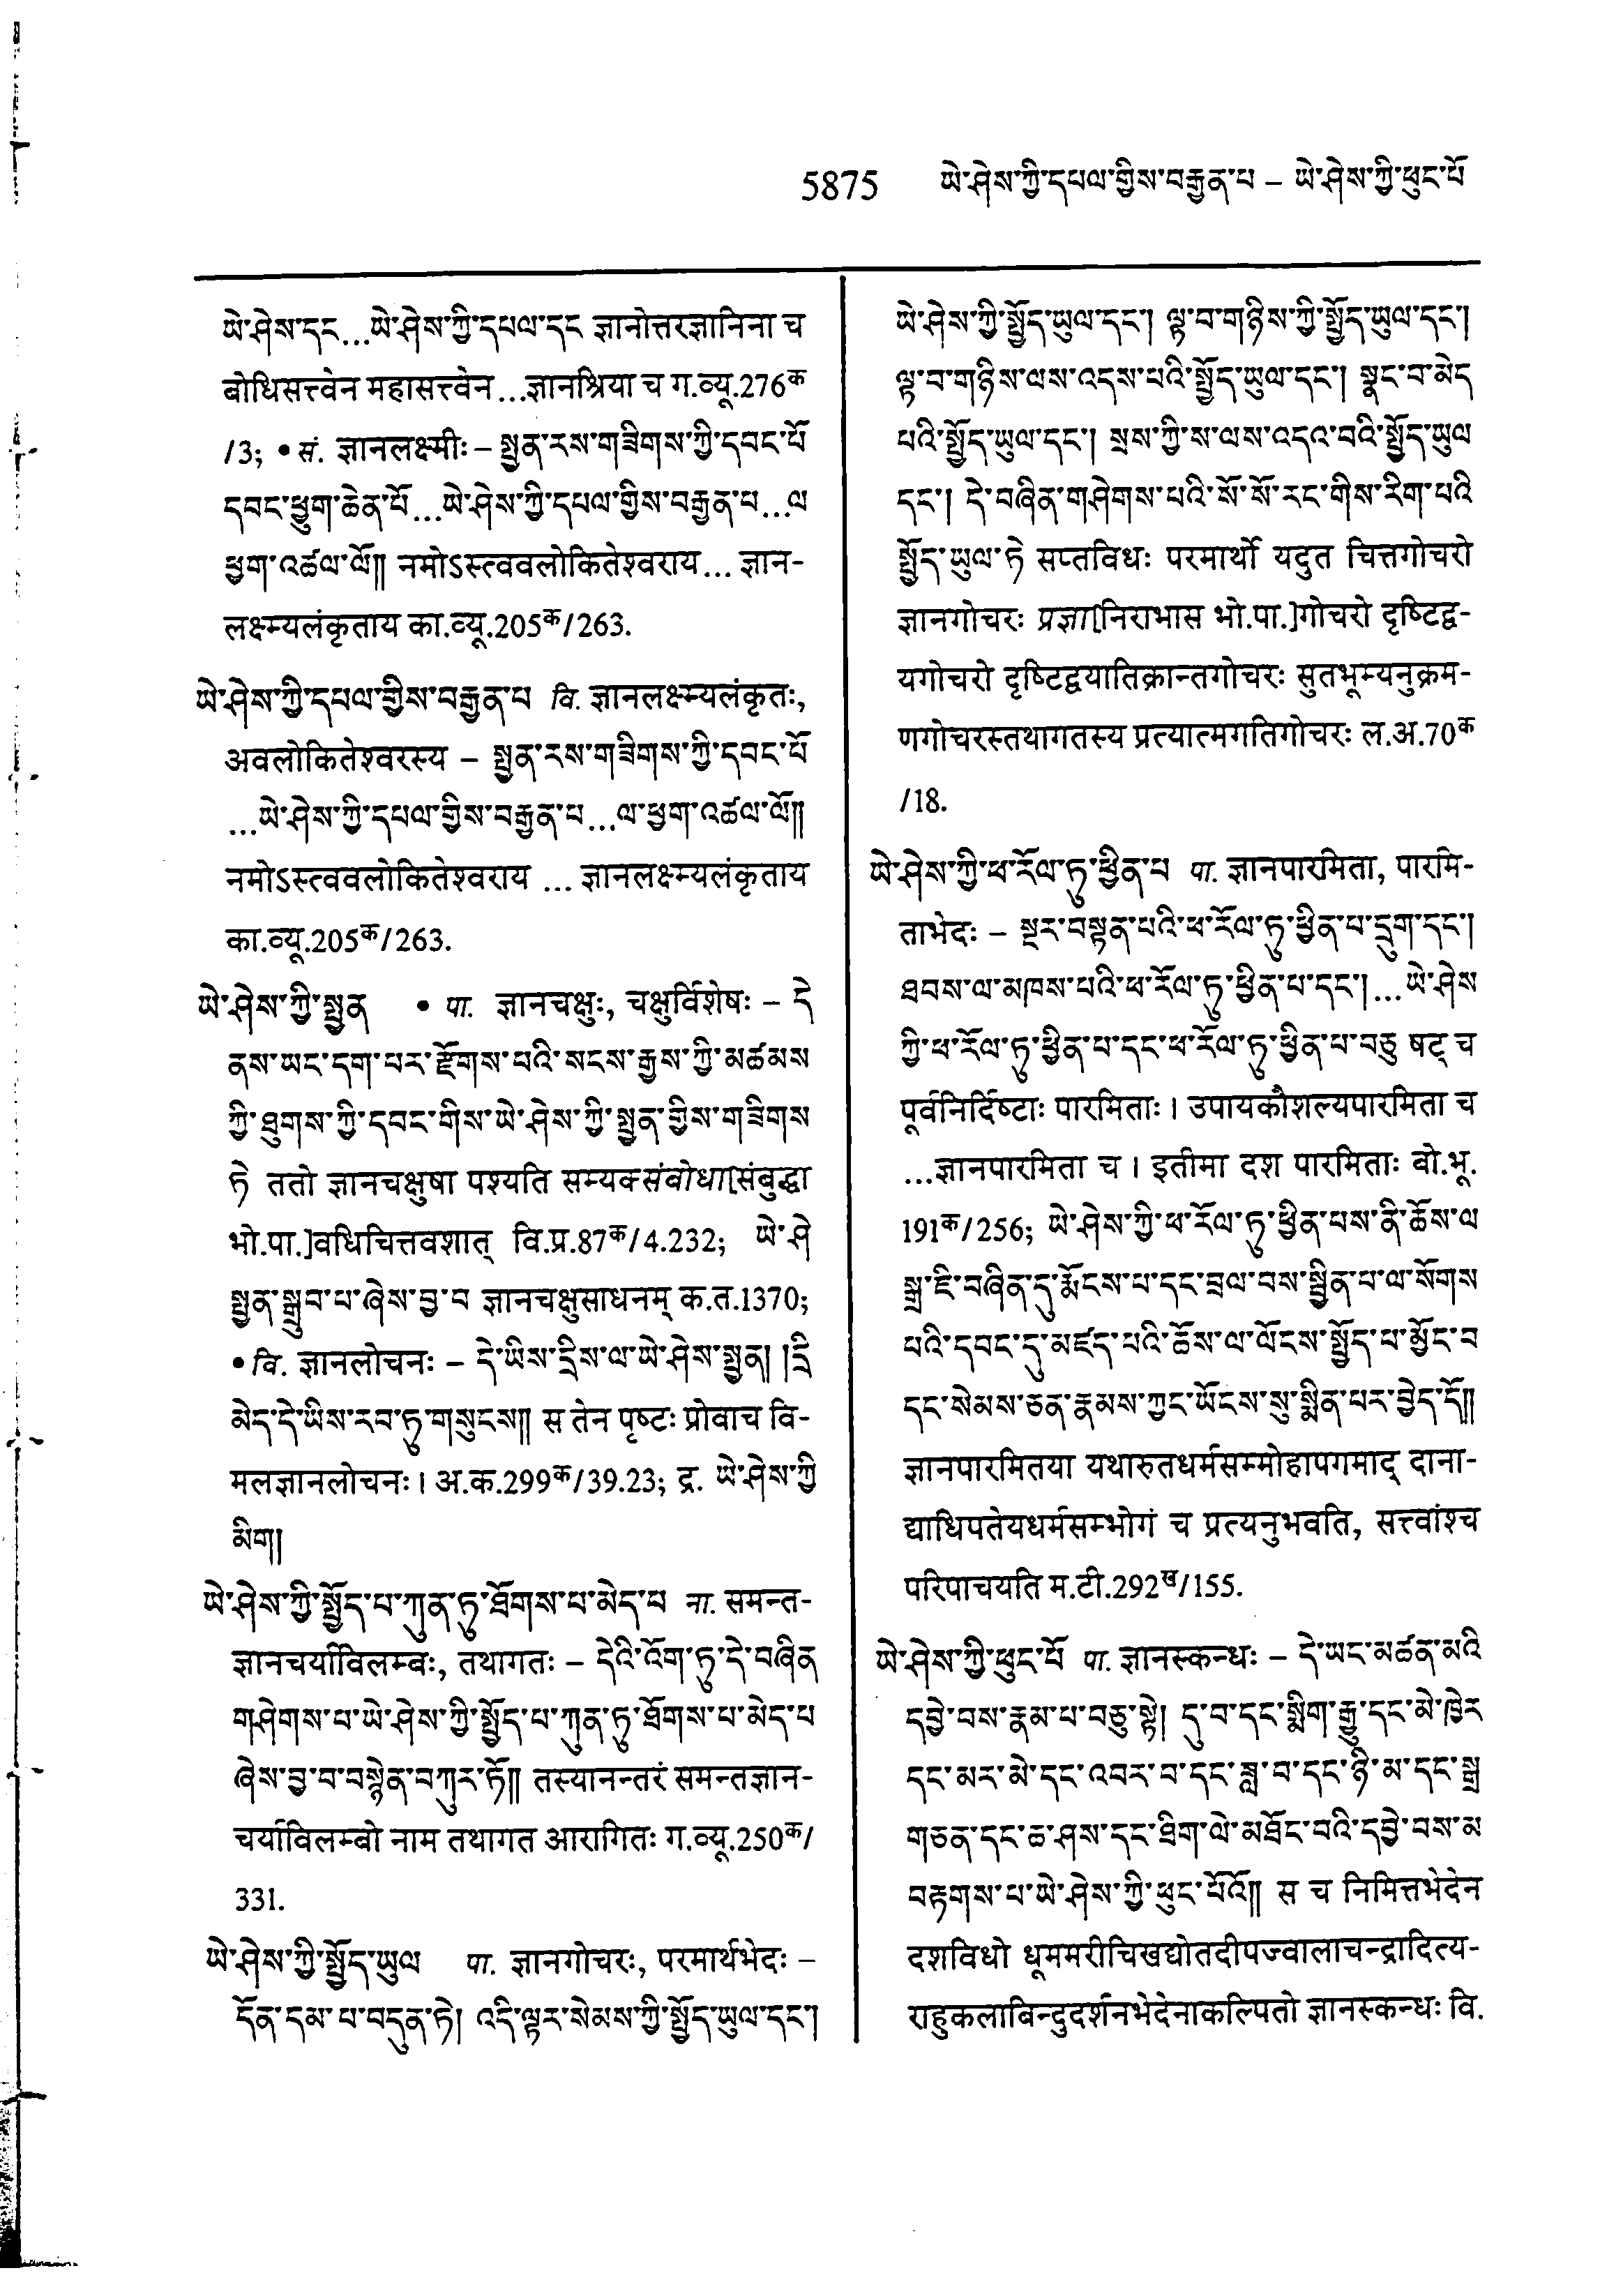 5875 ཡེ་ཤེས་ཀྱི་དཔལ་གྱིས་བརྒྱན་པ – ཡེ་ཤེས་ཀྱི་ཕུང་པོ
ཡེ་ཤེས་དང...ཡེ་ཤེས་ཀྱི་དཔལ་དང ज्ञानोत्तरज्ञानिना च
बोधिसत्त्वेन महासत्त्वेन ...ज्ञानश्रिया च ग.व्यू.276क
/3; • सं. ज्ञानलक्ष्मीः – སྤྱན་རས་གཟིགས་ཀྱི་དབང་པོ
དབང་ཕྱུག་ཆེན་པོ...ཡེ་ཤེས་ཀྱི་དཔལ་གྱིས་བརྒྱན་པ...ལ
ཕྱག་འཚལ་ལོ༎ नमोऽस्त्ववलोकितेश्वराय... ज्ञान-
लक्ष्म्यलंकृताय का.व्यू.205क/263.
ཡེ་ཤེས་ཀྱི་དཔལ་གྱིས་བརྒྱན་པ वि. ज्ञानलक्ष्म्यलंकृतः,
अवलोकितेश्वरस्य – སྤྱན་རས་གཟིགས་ཀྱི་དབང་པོ
...ཡེ་ཤེས་ཀྱི་དཔལ་གྱིས་བརྒྱན་པ...ལ་ཕྱག་འཚལ་ལོ༎
नमोऽस्त्ववलोकितेश्वराय ... ज्ञानलक्ष्म्यलंकृताय
का.व्यू.205क/263.
ཡེ་ཤེས་ཀྱི་སྤྱན • पा. ज्ञानचक्षुः, चक्षुर्विशेषः – དེ
ནས་ཡང་དག་པར་རྫོགས་པའི་སངས་རྒྱས་ཀྱི་མཚམས
ཀྱི་ཐུགས་ཀྱི་དབང་གིས་ཡེ་ཤེས་ཀྱི་སྤྱན་གྱིས་གཟིགས
ཏེ ततो ज्ञानचक्षुषा पश्यति सम्यक्संबोधा[संबुद्धा
भो.पा.]वधिचित्तवशात् वि.प्र.87क/4.232; ཡེ་ཤེ
སྤྱན་སྒྲུབ་པ་ཞེས་བྱ་བ ज्ञानचक्षुसाधनम् क.त.1370;
• वि. ज्ञानलोचनः – དེ་ཡིས་དྲིས་ལ་ཡེ་ཤེས་སྤྱན། །དྲི
མེད་དེ་ཡིས་རབ་ཏུ་གསུངས༎ स तेन पृष्टः प्रोवाच वि-
मलज्ञानलोचनः। अ.क.299क/39.23; द्र. ཡེ་ཤེས་ཀྱི
མིག།
ཡེ་ཤེས་ཀྱི་སྤྱོད་པ་ཀུན་ཏུ་ཐོགས་པ་མེད་པ ना. समन्त-
ज्ञानचर्याविलम्बः, तथागतः – དེའི་འོག་ཏུ་དེ་བཞིན
གཤེགས་པ་ཡེ་ཤེས་ཀྱི་སྤྱོད་པ་ཀུན་ཏུ་ཐོགས་པ་མེད་པ
ཞེས་བྱ་བ་བསྙེན་བཀུར་ཏོ༎ तस्यानन्तरं समन्तज्ञान-
चर्याविलम्बो नाम तथागत आरागितः ग.व्यू.250क/
331.
ཡེ་ཤེས་ཀྱི་སྤྱོད་ཡུལ पा. ज्ञानगोचरः, परमार्थभेदः –
དོན་དམ་པ་བདུན་ཏེ། འདི་ལྟར་སེམས་ཀྱི་སྤྱོད་ཡུལ་དང་།
ཡེ་ཤེས་ཀྱི་སྤྱོད་ཡུལ་དང་། ལྟ་བ་གཉིས་ཀྱི་སྤྱོད་ཡུལ་དང་།
ལྟ་བ་གཉིས་ལས་འདས་པའི་སྤྱོད་ཡུལ་དང་། སྣང་བ་མེད
པའི་སྤྱོད་ཡུལ་དང་། སྲས་ཀྱི་ས་ལས་འདའ་བའི་སྤྱོད་ཡུལ
དང་། དེ་བཞིན་གཤེགས་པའི་སོ་སོ་རང་གིས་རིག་པའི
སྤྱོད་ཡུལ་ཏེ सप्तविधः परमार्थो यदुत चित्तगोचरो
ज्ञानगोचरः प्रज्ञा[निराभास भो.पा.]गोचरो दृष्टिद्व-
यगोचरो दृष्टिद्वयातिक्रान्तगोचरः सुतभूम्यनुक्रम-
णगोचरस्तथागतस्य प्रत्यात्मगतिगोचरः ल.अ.70क
/18.
ཡེ་ཤེས་ཀྱི་ཕ་རོལ་ཏུ་ཕྱིན་པ पा. ज्ञानपारमिता, पारमि-
ताभेदः – སྔར་བསྟན་པའི་ཕ་རོལ་ཏུ་ཕྱིན་པ་དྲུག་དང་།
ཐབས་ལ་མཁས་པའི་ཕ་རོལ་ཏུ་ཕྱིན་པ་དང་།...ཡེ་ཤེས
ཀྱི་ཕ་རོལ་ཏུ་ཕྱིན་པ་དང་ཕ་རོལ་ཏུ་ཕྱིན་པ་བཅུ षट् च
पूर्वनिर्दिष्टाः पारमिताः। उपायकौशल्यपारमिता च
...ज्ञानपारमिता च। इतीमा दश पारमिताः बो.भू.
191क/256; ཡེ་ཤེས་ཀྱི་ཕ་རོལ་ཏུ་ཕྱིན་པས་ནི་ཆོས་ལ
སྒྲ་ཇི་བཞིན་དུ་རྨོངས་པ་དང་བྲལ་བས་སྦྱིན་པ་ལ་སོགས
པའི་དབང་དུ་མཛད་པའི་ཆོས་ལ་ལོངས་སྤྱོད་པ་མྱོང་བ
དང་སེམས་ཅན་རྣམས་ཀྱང་ཡོངས་སུ་སྨིན་པར་བྱེད་དོ༎
ज्ञानपारमितया यथारुतधर्मसम्मोहापगमाद् दाना-
द्याधिपतेयधर्मसम्भोगं च प्रत्यनुभवति, सत्त्वांश्च
परिपाचयति म.टी.292ख/155.
ཡེ་ཤེས་ཀྱི་ཕུང་པོ पा. ज्ञानस्कन्धः – དེ་ཡང་མཚན་མའི
དབྱེ་བས་རྣམ་པ་བཅུ་སྟེ། དུ་བ་དང་སྨིག་རྒྱུ་དང་མེ་ཁྱེར
དང་མར་མེ་དང་འབར་བ་དང་ཟླ་བ་དང་ཉི་མ་དང་སྒྲ
གཅན་དང་ཆ་ཤས་དང་ཐིག་ལེ་མཐོང་བའི་དབྱེ་བས་མ
བརྟགས་པ་ཡེ་ཤེས་ཀྱི་ཕུང་པོའོ༎ स च निमित्तभेदेन
दशविधो धूममरीचिखद्योतदीपज्वालाचन्द्रादित्य-
राहुकलाबिन्दुदर्शनभेदेनाकल्पितो ज्ञानस्कन्धः वि.